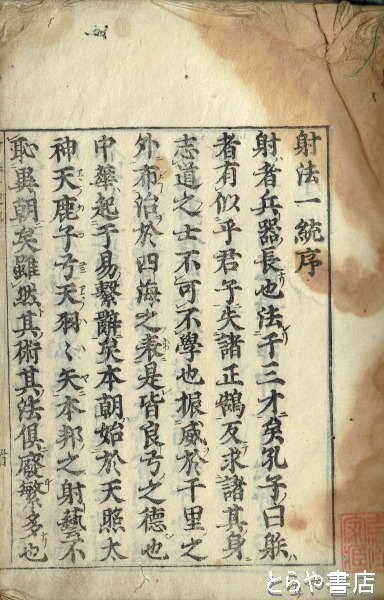 射法一統序
射者兵器長也法于三才矣孔子曰射
者有似乎君子失諸正鵠反求諸其身
志道之士不可不學也振威於千里之
外布治於四海之表是皆良弓之德也
中華起于易繫辭矣本朝始於天照太
神天鹿子弓天羽々矢本邦之射藝不
恥異朝矣雖然其術其法俱廢繁多也
とらや書店